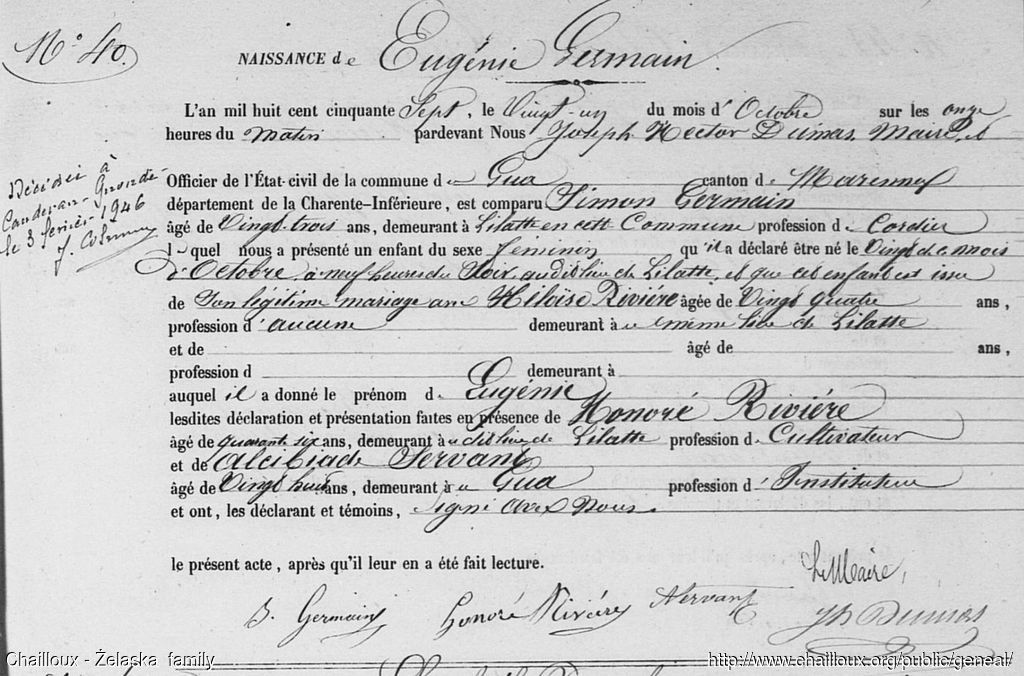 N.° 40.
NAISSANCE de Eugénie Germain.
L'an mil huit cent cinquante Sept, le Vingt-un du mois d'Octobre sur les onze
heures du matin pardevant Nous Joseph Hector Dumas, Maire, et
Officier de l'État-civil de la commune de Gua canton de Marennes
département de la Charente-Inférieure, est comparu Simon Germain
âgé de Vingt-trois ans, demeurant à Lilatte en cette Commune profession de Cordier
lequel nous a présenté un enfant du sexe féminin qu'il a déclaré être né le Vingt de ce mois
d'Octobre à neuf heures du Soir, au dit lieu de Lilatte, et que cet enfant est issu
de Son légitime mariage avec Héloïse Rivière âgée de Vingt quatre ans,
profession d'aucune demeurant à même lieu de Lilatte
et de âgé de ans,
profession d demeurant à
auquel il a donné le prénom de Eugénie
lesdites déclaration et présentation faites en présence de Honoré Rivière
âgé de quarante six ans, demeurant à dit lieu de Lilatte profession de Cultivateur
et de Alcibiade Servant
âgé de Vingt huit ans, demeurant à Gua profession d'Instituteur
et ont, les déclarant et témoins, Signé avec Nous
le présent acte, après qu'il leur en a été fait lecture.
Décédée à
Caudéran-Gironde-
le 3 février 1946
Le Maire,
S. Germain Honoré Rivière AServant
Jh Dumas
Chailloux - Żelaska family http://www.chailloux.org/public/geneal/